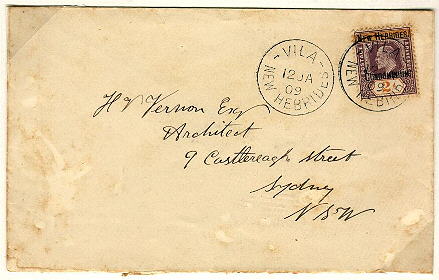 NEW HEBRIDES
CONDOMINIUM
2
- VILA -
12 JA
09
NEW HEBRIDES
NEW HEBRIDES
H V Vernon Esq
Architect
9 Castlereagh Street
Sydney
N S W